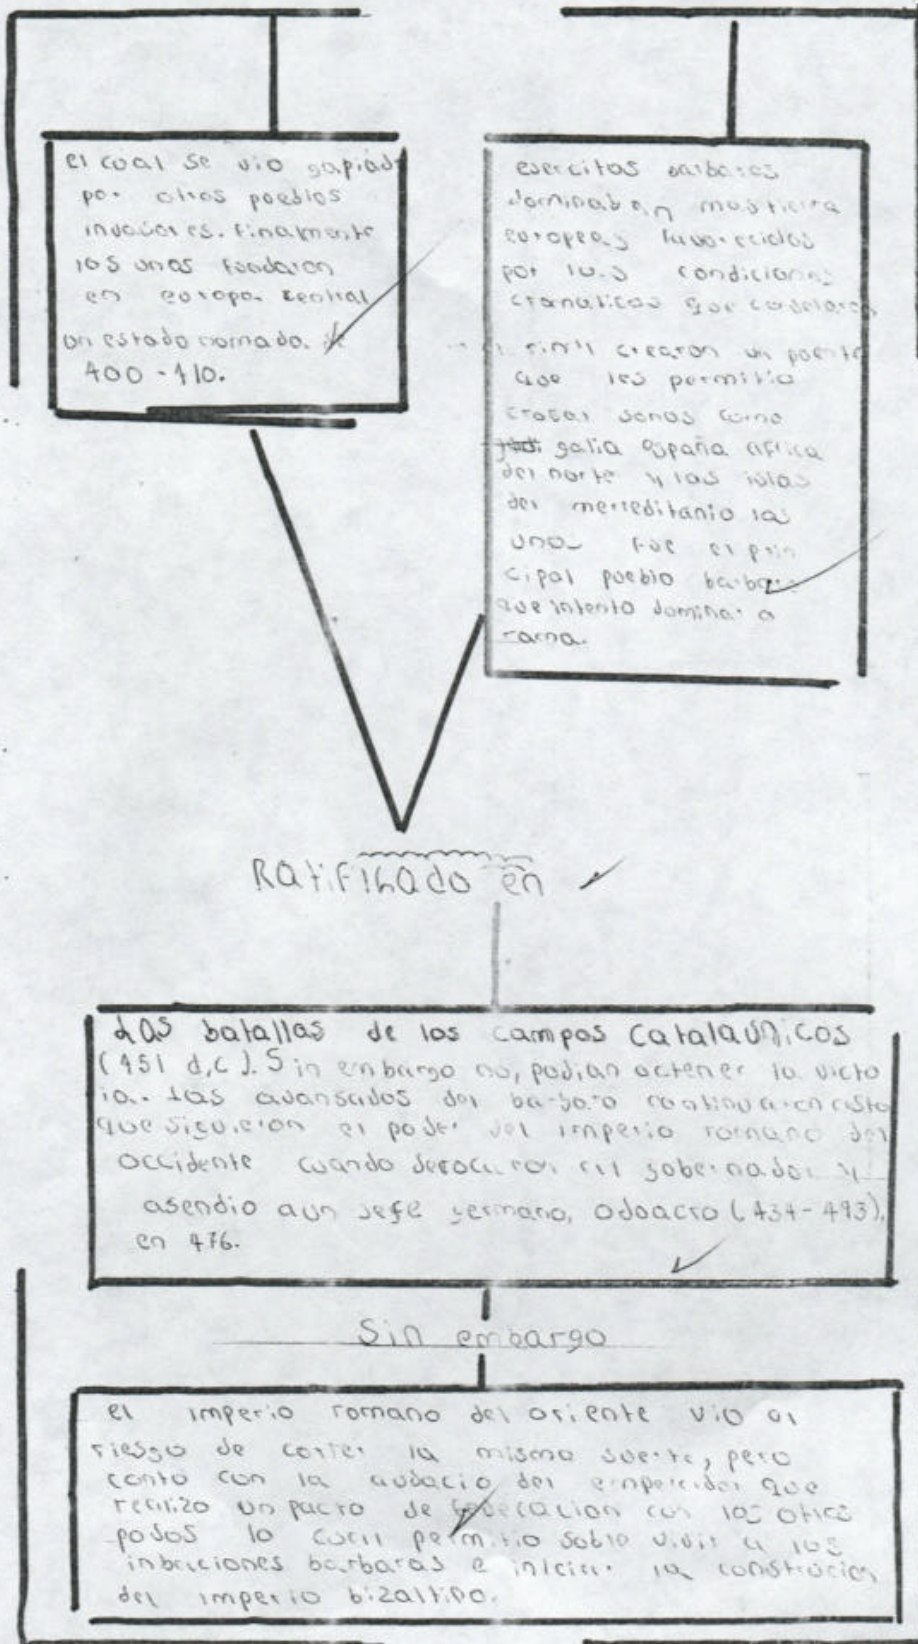 el cual se vio
por otros pueblos
invasores. finalmente
los unos fundaron
en europa central
un estado nomado.
400-410.
esercitos barbaros
dominaban
europeas favorecidos
por los condiciones
que
crearon un puente
que les permitia
crozar sonas como
galia españa africa
del norte y las islas
del merreditanio las
unos fue el prin
cipal pueblo barbaro
que intento dominar a
roma.
Ratifihado en
Las batallas de los campos Catalaunicos
(451 d,c). Sin embargo no, podian octener la victo
ia. Las avansados del barbaro continuaron
que siguieron el poder del imperio romano del
occidente cuando derocaron al gobernador y
asendio aun jefe germano, odoacro (434-493),
en 476.
Sin embargo
el imperio romano del oriente vio al
riesgo de correr la mismo suerte, pero
conto con la audacio del emperador que
realizo un pacto de federacion con los
podos lo cual permitio sobre vivir a los
barbaras e iniciar la construccion
del imperio bizaltino.